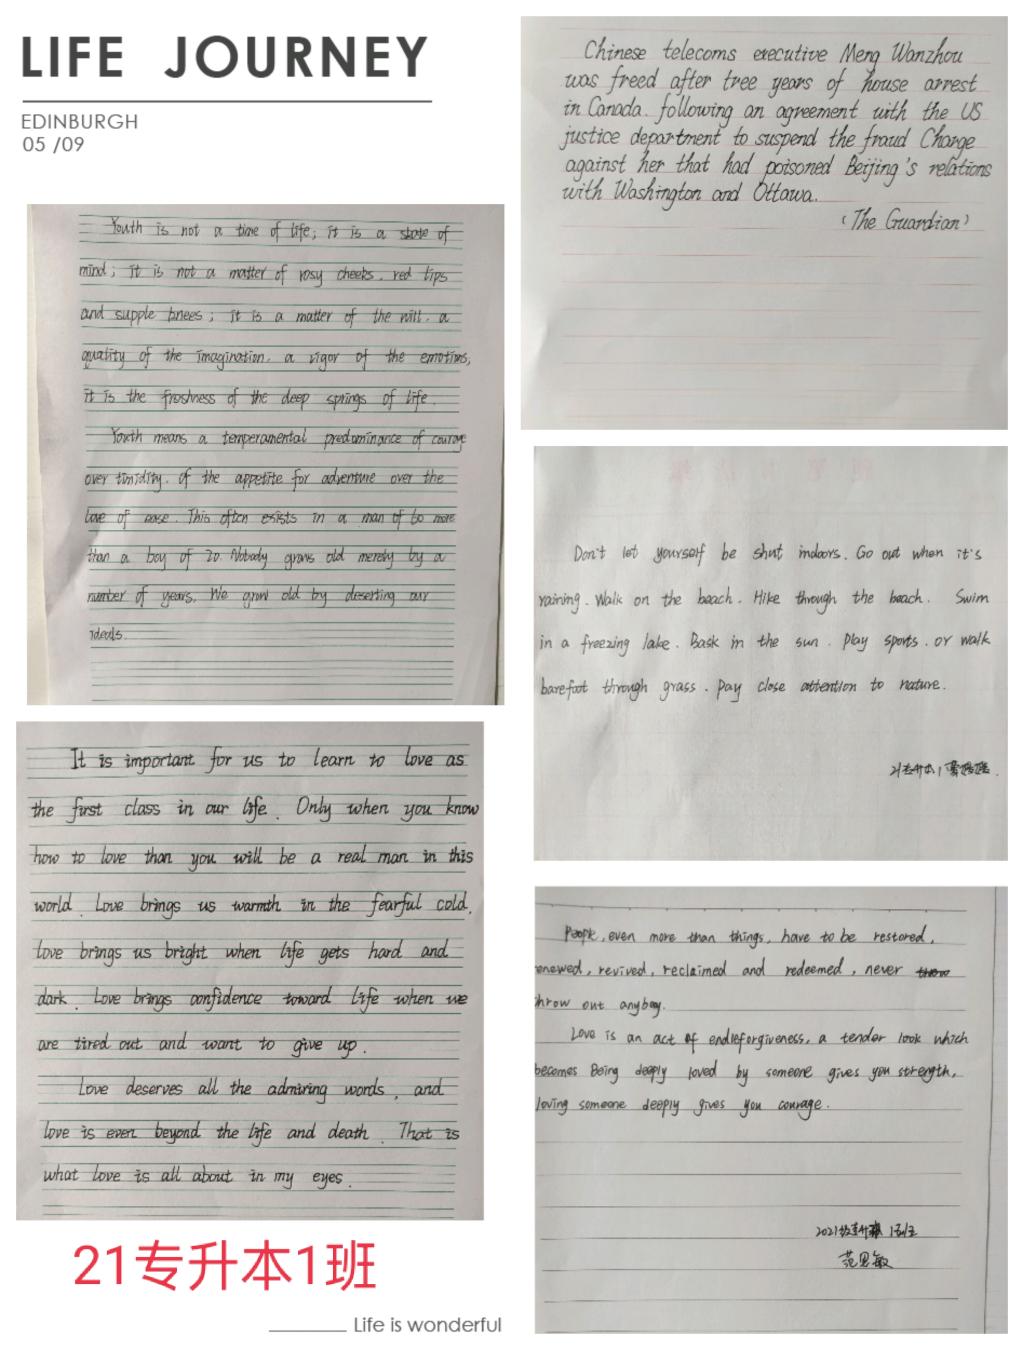 LIFE JOURNEY
EDINBURGH
05 /09
Youth is not a time of life; it is a state of
mind; it is not a matter of rosy cheeks, red lips
and supple knees; it is a matter of the will, a
quality of the imagination, a vigor of the emotions,
it is the freshness of the deep springs of life.
Youth means a temperamental predominance of courage
over timidity. of the appetite for adventure over the
love of ease. This often exists in a man of 60 more
than a boy of 20. Nobody grows old merely by a
number of years. We grow old by deserting our
ideals.
It is important for us to learn to love as
the first class in our life. Only when you know
how to love than you will be a real man in this
world. Love brings us warmth in the fearful cold.
Love brings us bright when life gets hard and
dark. Love brings confidence toward life when we
are tired out and want to give up.
Love deserves all the admiring words, and
love is even beyond the life and death. That is
what love is all about in my eyes.
21专升本1班
Life is wonderful
Chinese telecoms executive Meng Wanzhou
was freed after tree years of house arrest
in Canada. following an agreement with the US
justice department to suspend the fraud Charge
against her that had poisoned Beijing's relations
with Washington and Ottawa.
(The Guardian)
Don't let yourself be shut indoors. Go out when it's
raining. Walk on the beach. Hike through the beach. Swim
in a freezing lake. Bask in the sun. Play sports. or walk
barefoot through grass. Pay close attention to nature.
21专升本1
People, even more than things, have to be restored,
enewed, revived, reclaimed and redeemed, never
hrow out anyboy.
Love is an act of endleforgiveness, a tender look which
becomes Being deeply loved by someone gives you strength,
loving someone deeply gives you courage.
2021级专升本1班
范思敏